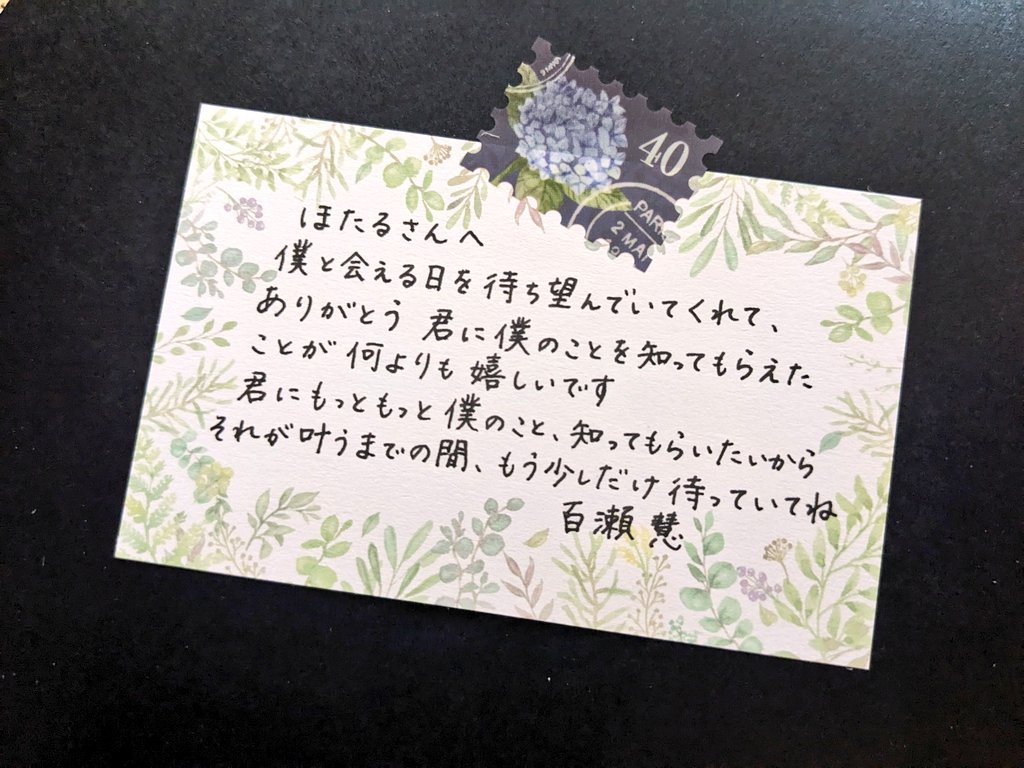 40
PAR
2 MA
ほたるさんへ
僕と会える日を待ち望んでいてくれて、
ありがとう 君に僕のことを知ってもらえた
ことが何よりも嬉しいです
君にもっともっと僕のこと、知ってもらいたいから
それが叶うまでの間、もう少しだけ待っていてね
百瀬 慧